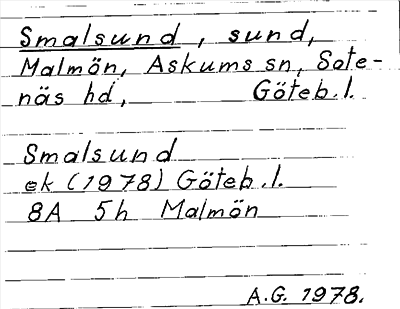 Smalsund, sund,
Malmön, Askums sn, Sote-
näs hd, Göteb.l.
Smalsund
ek (1978) Göteb.l.
8A 5h Malmön
A.G. 1978.